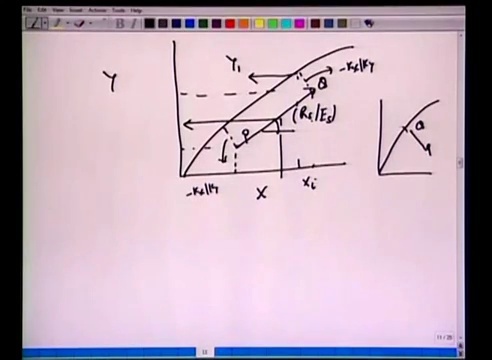 File Edit View Insert Actions Tools Help
Y
Y₁
-Kx/Ky
Q
(Rs/Es)
P
Q
P
-Kx/Ky
X
Xi
11 / 20